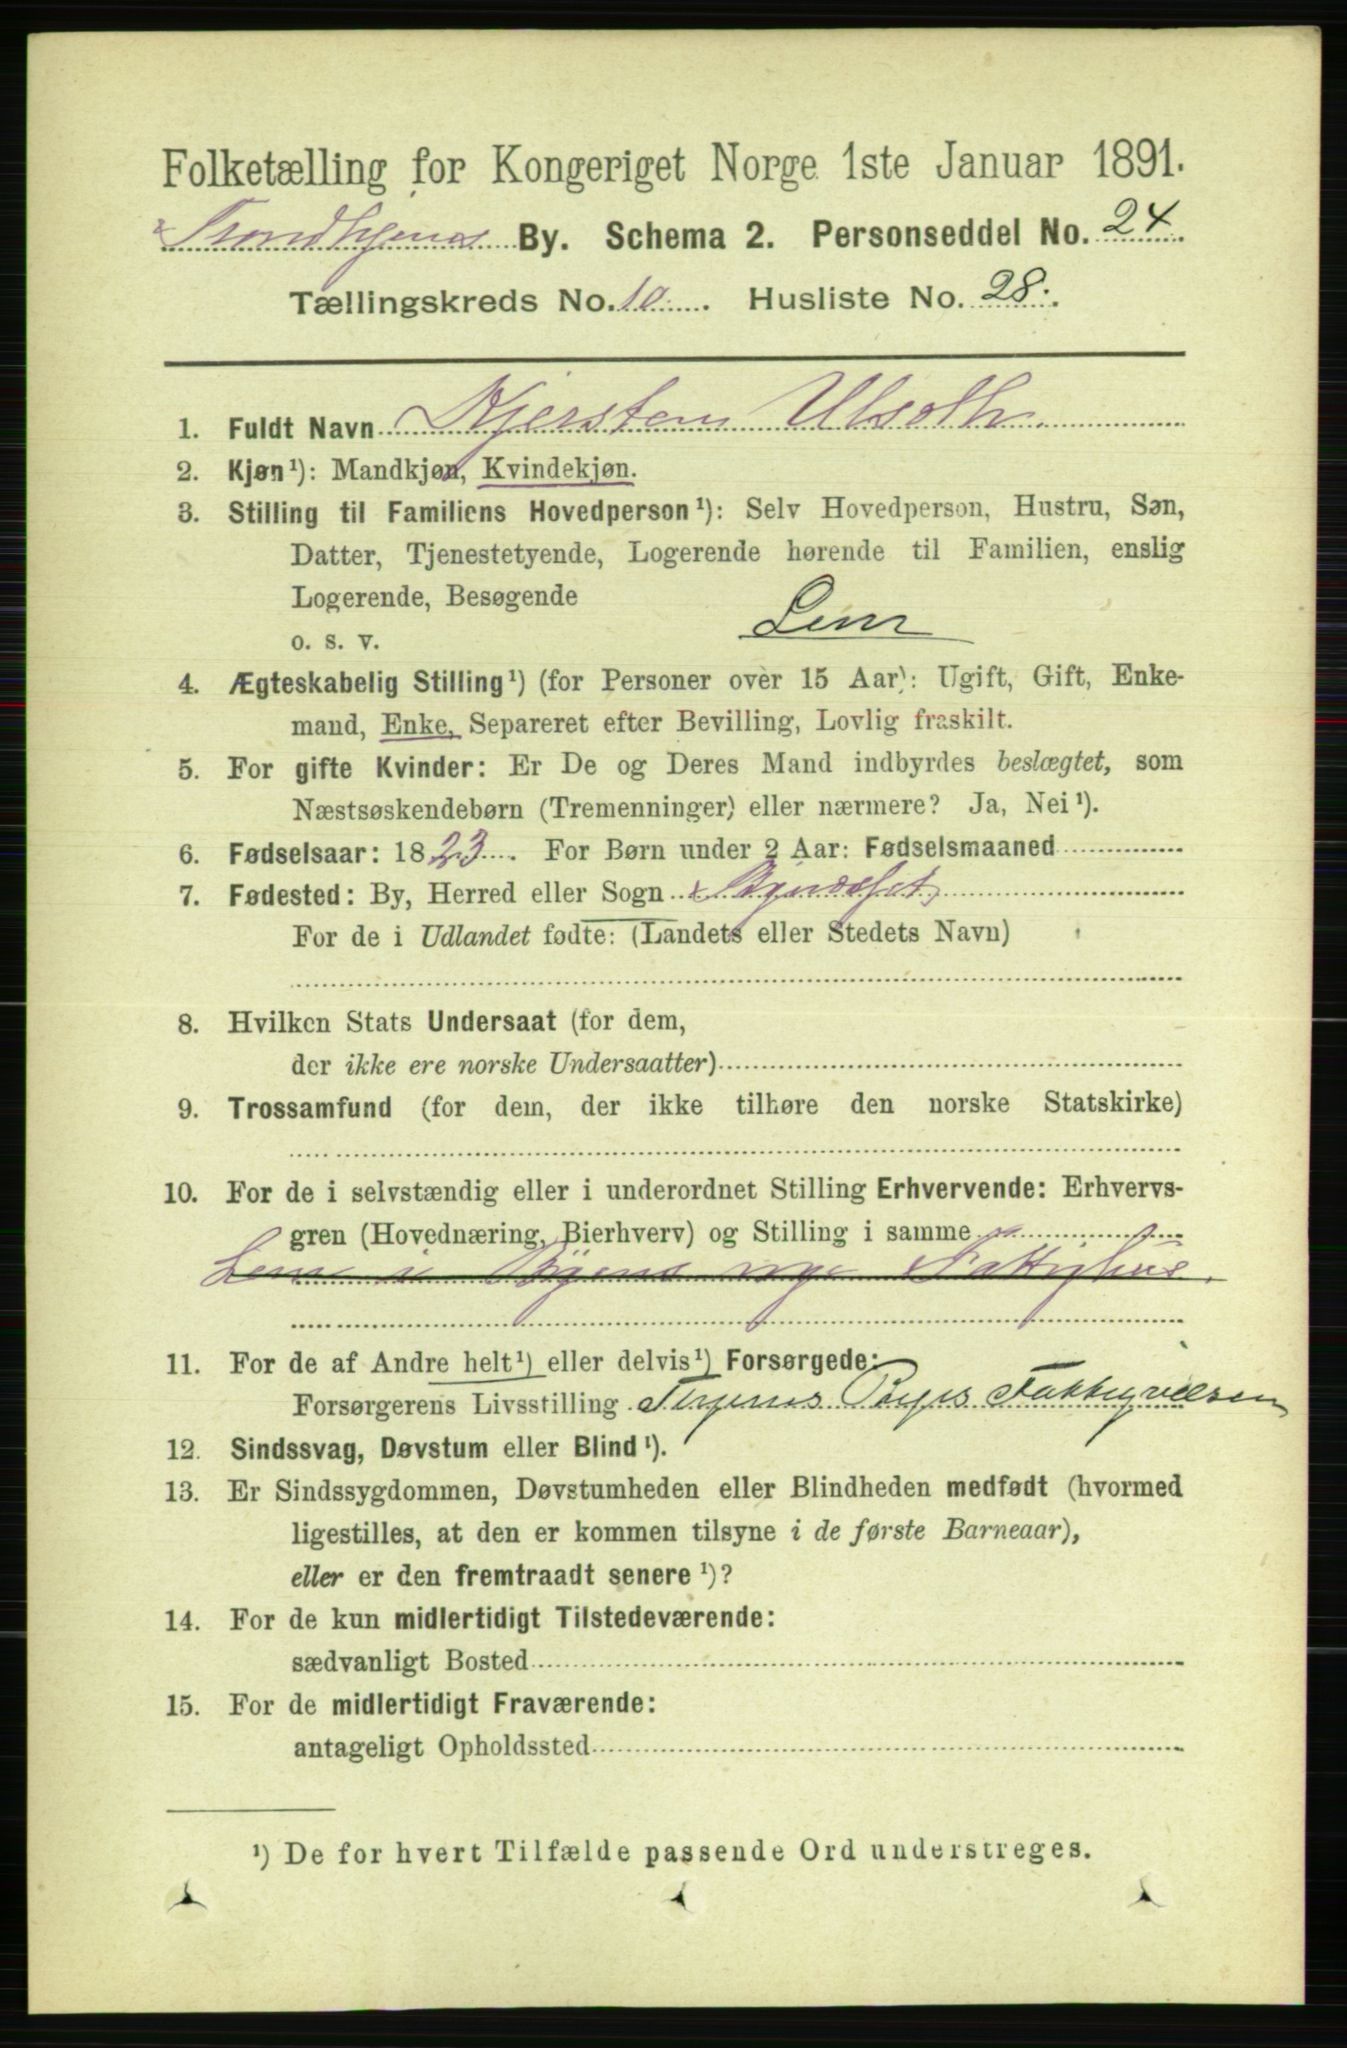 Folketælling for Kongeriget Norge 1ste Januar 1891.
Trondhjems By. Schema 2. Personseddel No. 24
Tællingskreds No. 10. Husliste No. 28.
1. Fuldt Navn Kjersten Ulseth.
2. Kjøn¹): Mandkjøn, Kvindekjøn.
3. Stilling til Familiens Hovedperson¹): Selv Hovedperson, Hustru, Søn,
Datter, Tjenestetyende, Logerende hørende til Familien, enslig
Logerende, Besøgende
o. s. v. Lem
4. Ægteskabelig Stilling¹) (for Personer over 15 Aar): Ugift, Gift, Enke-
mand, Enke, Separeret efter Bevilling, Lovlig fraskilt.
5. For gifte Kvinder: Er De og Deres Mand indbyrdes beslægtet, som
Næstsøskendebørn (Tremenninger) eller nærmere? Ja, Nei¹).
6. Fødselsaar: 1823. For Børn under 2 Aar: Fødselsmaaned
7. Fødested: By, Herred eller Sogn Bynæsset
For de i Udlandet fødte: (Landets eller Stedets Navn)
8. Hvilken Stats Undersaat (for dem,
der ikke ere norske Undersaatter)
9. Trossamfund (for dem, der ikke tilhøre den norske Statskirke)
10. For de i selvstændig eller i underordnet Stilling Erhvervende: Erhvervs-
gren (Hovednæring, Bierhverv) og Stilling i samme
Lem i Byens nye Fattighus.
11. For de af Andre helt¹) eller delvis¹) Forsørgede:
Forsørgerens Livsstilling Byes Fattigvæsen
12. Sindssvag, Døvstum eller Blind¹).
13. Er Sindssygdommen, Døvstumheden eller Blindheden medfødt (hvormed
ligestilles, at den er kommen tilsyne i de første Barneaar),
eller er den fremtraadt senere¹)?
14. For de kun midlertidigt Tilstedeværende:
sædvanligt Bosted
15. For de midlertidigt Fraværende:
antageligt Opholdssted
¹) De for hvert Tilfælde passende Ord understreges.